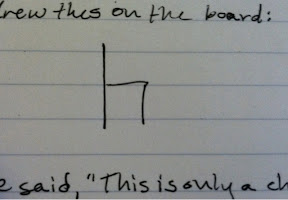 drew this on the board:
e said, "This is only a ch